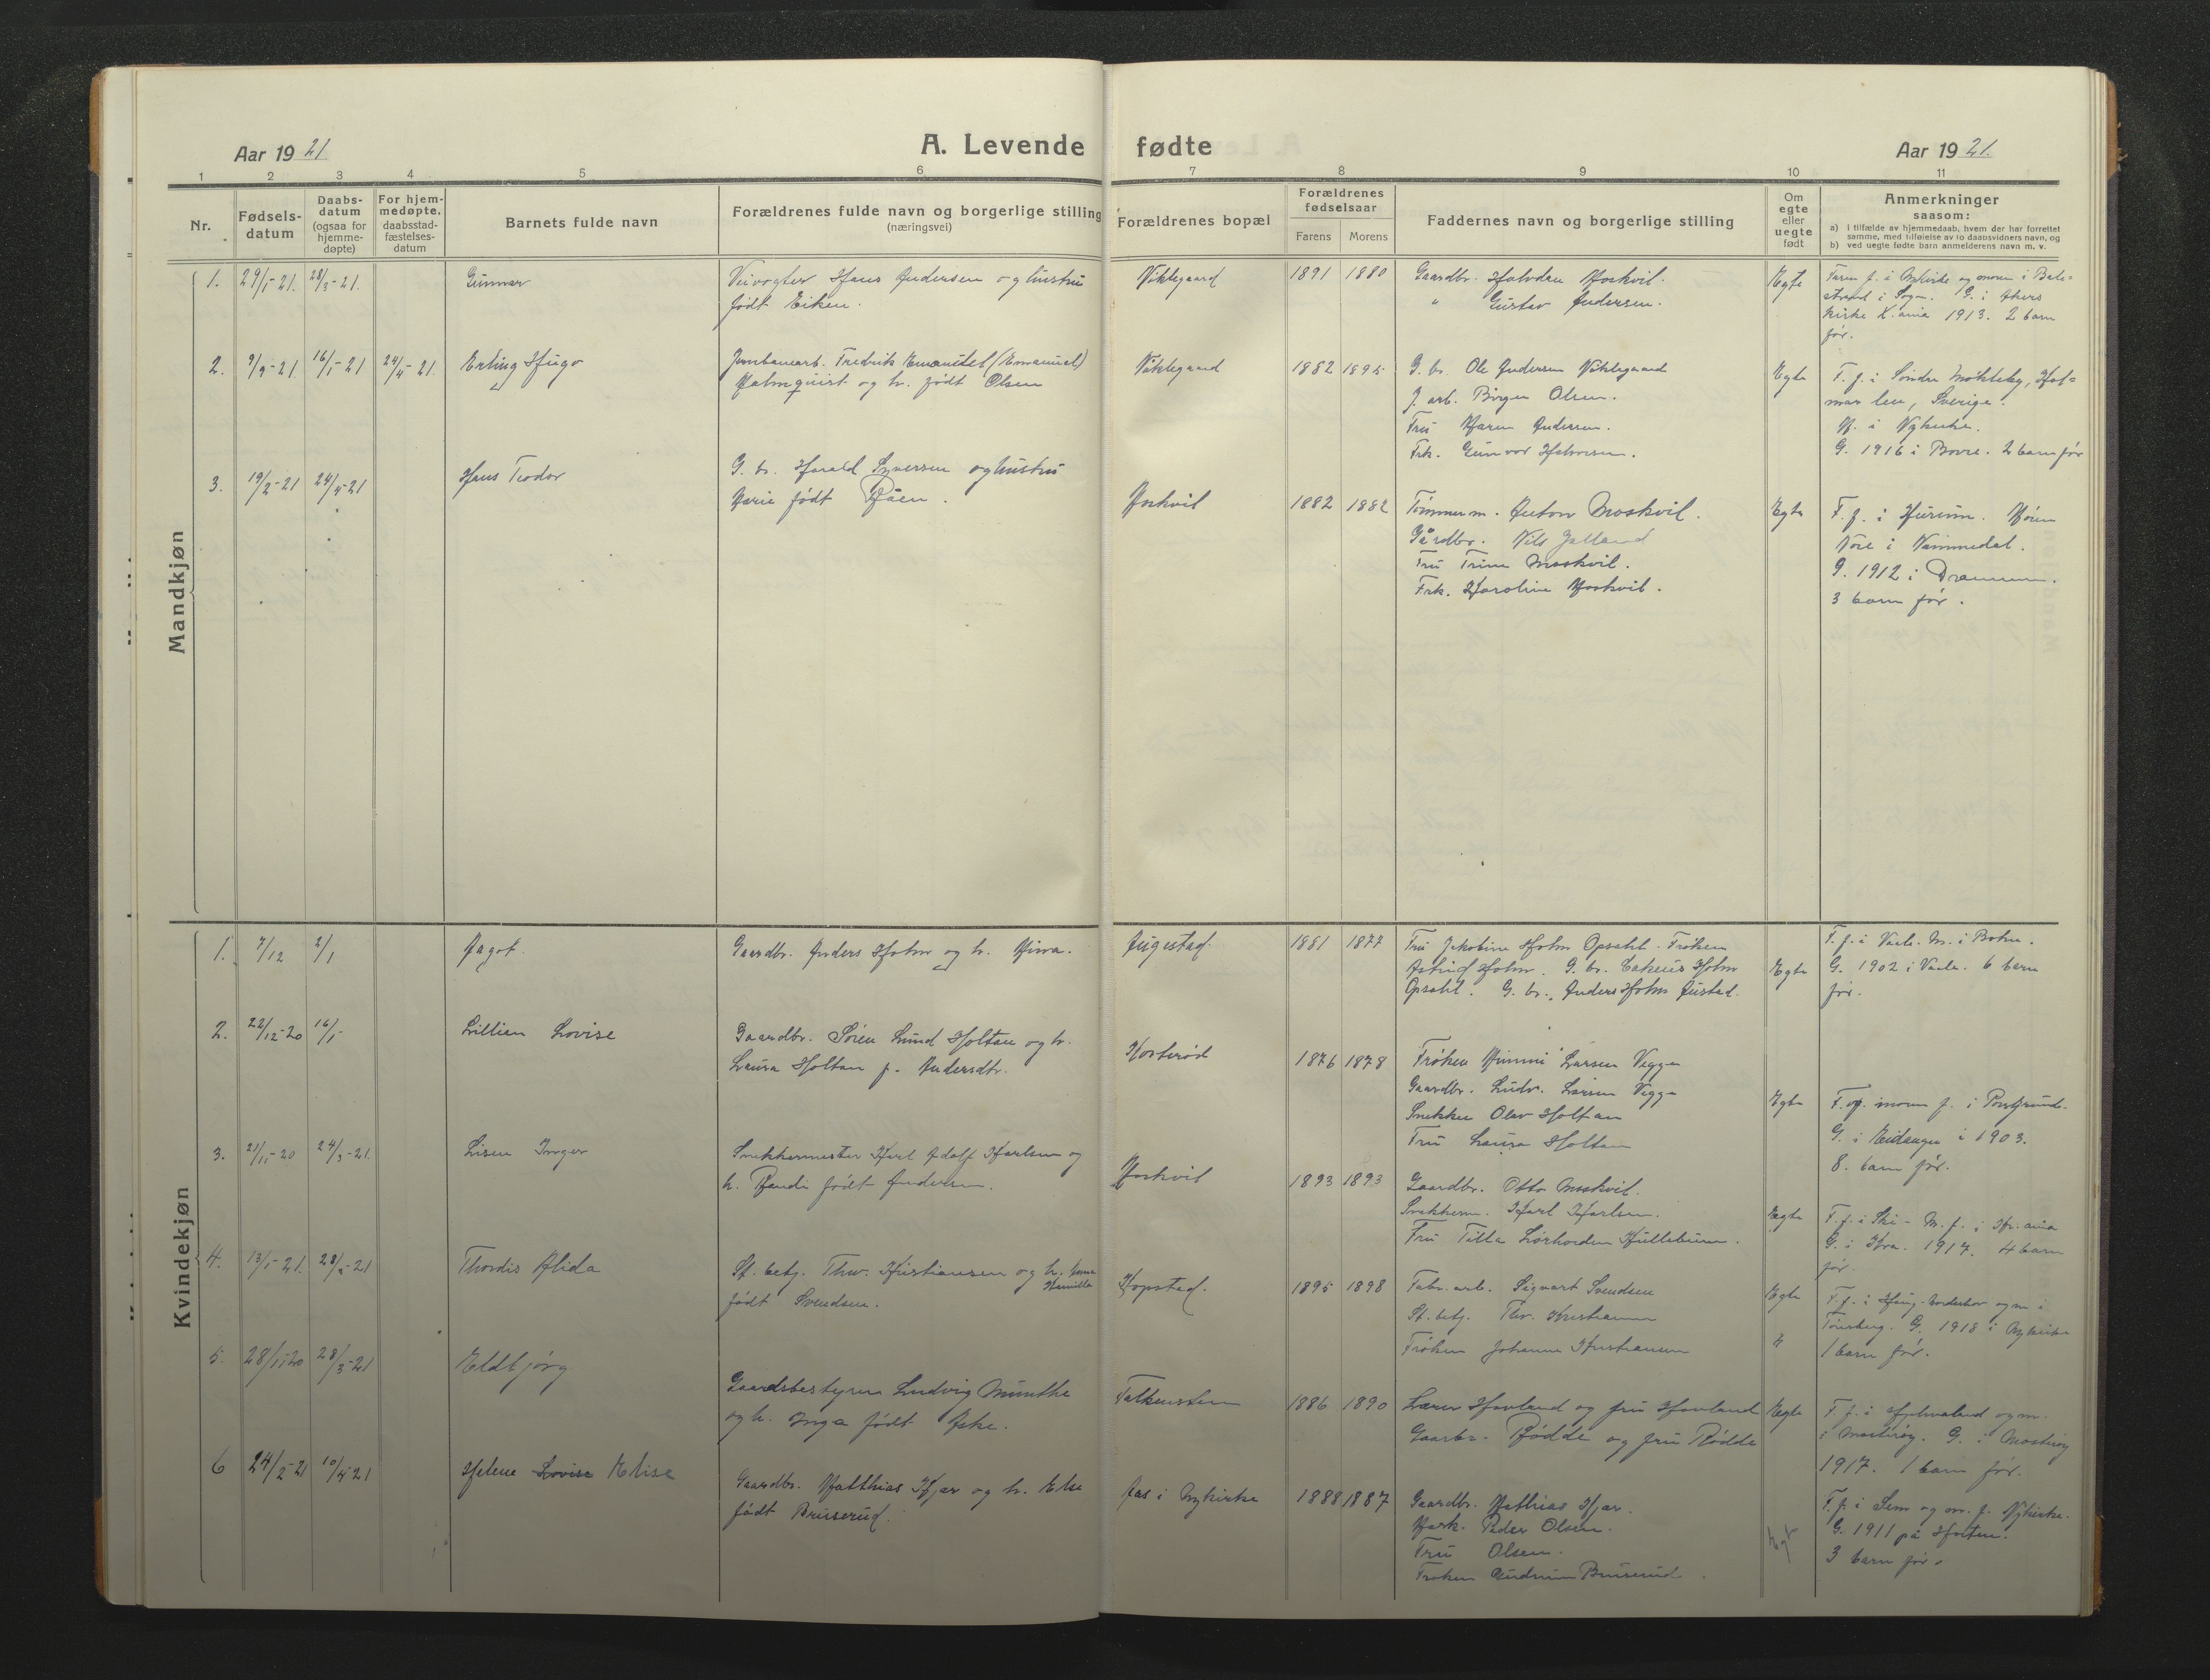 Aar 1921
A. Levende fødte
Aar 1921.
1 2 3 4 5 6 7 8 9 10 11
Nr.
Fødsels-
datum
Daabs-
datum
(ogsaa for
hjemme-
døpte)
For hjem-
medøpte,
daabsstad-
fæstelses-
datum
Barnets fulde navn
Forældrenes fulde navn og borgerlige stilling
(næringsvei)
Forældrenes bopæl
Forældrenes
fødselsaar
Farens Morens
Faddernes navn og borgerlige stilling
Om
egte
eller
uegte
født
Anmerkninger
saasom:
a) i tilfælde av hjemmedaab, hvem der har forrettet
samme, med tilføielse av to daabsvidners navn, og
b) ved uegte fødte barn anmelderens navn m. v.
Mandkjøn
1. 29/1-21. 28/3-21. Gunnar
Veivogter Hans Andersen og hustru
født Eiken.
Viklegaard 1891 1880
Gaardbr. Halvdan Moskvil.
" Gustav Andersen.
Egte
Faren f. i Nykirke og moren i Bale-
strand i Sogn. G. i Akers
kirke K.ania 1913. 2 barn
før.
2. 9/9-21. 16/1-21 24/4-21. Erling Hugo
Jernbanearb. Fredrik Emanuel (Emanuel)
Malmquist og h. født Olsen
Viklegaard 1882 1895
G. br. Ole Andersen Viklegaard
J. arb. Birger Olsen.
Fru Maren Andersen.
Frk. Gunvor Halvorsen.
Egte
F. f. i Söndra Möckleby, Kal-
mar len, Sverige.
M. i Nykirke.
G. 1916 i Borre. 2 barn før
3. 19/2-21 24/4-21 Hans Teodor
G. br. Harald Syversen og hustru
Marie født Råen.
Moskvil 1882 1882
Tømmerm. Anton Moskvil.
Gårdbr. Nils Jalland
Fru Trine Moskvil.
Frk. Karoline Moskvil.
Egte
F. f. i Hurum. Moren
Nore i Nummedal.
G. 1912 i Drammen.
3 barn før.
Kvindekjøn
1. 7/12 2/1 Magot.
Gaardbr. Anders Holm og h. Mina.
Augestad. 1881 1877
Fru Jakobine Holm Opsahl. Frøken
Astrid Holm. G. br. Sakeus Holm
Opsahl. G. br., Anders Holm Austad.
Egte
F. f. i Vaale. M. i Botne.
G. 1902 i Vaale. 6 barn
før.
2. 22/12-20 16/1- Lillian Lovise
Gaardbr. Søren Lund Holtan og h.
Laura Holtan f. Andersdtr.
1876 1878
Frøken Mimmi Larsen Vegge
Gaardbr. Ludv. Larsen Vegge
Snekker Olav Holtan
Fru Laura Holtan
Egte
F. og moren f. i Porsgrund.
G. i Eidanger i 1903.
8. barn før.
3. 21/11-20 24/3-21. Lisen Inger
Snekkermester Karl Adolf Karlsen og
h. Randi født Andersen.
Moskvil 1893 1893
Gaardbr. Otto Moskvil.
Snekkerm. Karl Karlsen.
Fru Tilla
Egte
F. f. i Ski - M. f. i Kr. ania
G. i Kra. 1917. 4 barn
før.
4. 13/1-21. 28/2-21 Thordis Alida
St. betj. Thv. Kristiansen og h. Anna
født Svendsen.
Kopstad. 1895 1898
Fabr. arb. Sigvart Svendsen
St. betj. Thv. Kristiansen
Frøken Johanne Kristiansen
Egte
"
Tønsberg. G. 1918 i Nykirke
1 barn før.
5. 28/11-20 28/3-21 Eldbjørg
Gaardsbestyrer Ludvig Munthe
og h. Inga født Aske.
Falkensten 1886 1890
Lærer Hovland og fru Hovland
Gaarbr. Rødde og fru Rødde
Egte
i Mosterøy. G. i Mosterøy
1917. 1 barn før.
6 24/2-21 10/4-21 Helene Lovise Elise
Gaardbr. Matthias Kjær og h. Else
født Bruserud.
Aas i Nykirke 1888 1887
Gaardbr. Mathias Kjær.
Mask. Peder Olsen.
Fru Olsen.
Frøken Gudrun Bruserud.
Egt
F. f. i Sem og m. f. Nykirke.
G. 1911 på Holten.
3 barn før.